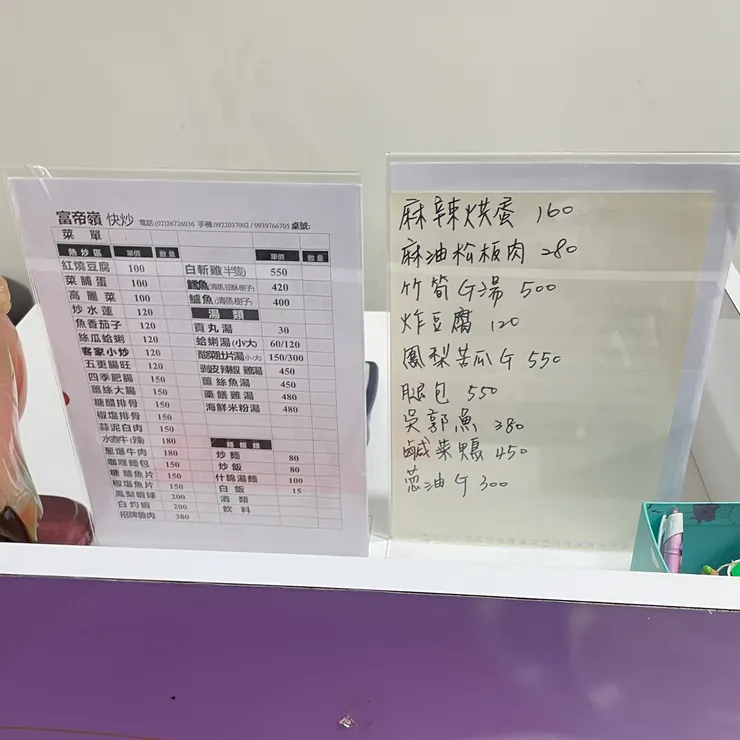 富帝嶺 快炒 電話:(02)26726036 手機:0922037002 / 0939766705 桌號:
菜單
熱炒區 單價 數量
紅燒豆腐 100
菜脯蛋 100
高麗菜 100
炒水蓮 120
魚香茄子 120
絲瓜蛤蜊 120
客家小炒 120
五更腸旺 120
四季肥腸 150
薑絲大腸 150
糖醋排骨 150
椒塩排骨 150
蒜泥白肉 150
水煮牛(辣) 180
蔥爆牛肉 180
咖哩麵包 150
糖醋魚片 150
椒塩魚片 150
鳳梨蝦球 200
白灼蝦 200
招牌魯肉 380
單價 數量
白斬雞(半隻) 550
鱈魚(清蒸豆酥樹子) 420
鱸魚(清蒸樹子) 400
湯類
貢丸湯 30
蛤蜊湯(小大) 60/120
酸菜肚片湯(小大) 150/300
剝皮辣椒雞湯 450
薑絲魚湯 450
藥膳雞湯 480
海鮮米粉湯 480
麵飯類
炒麵 80
炒飯 80
什錦湯麵 100
白飯 15
酒類
飲料
麻辣烘蛋 160
麻油松板肉 280
竹筍G湯 500
炸豆腐 120
鳳梨苦瓜G 550
腿包 550
吳郭魚 380
鹹菜鴨 450
蔥油G 300